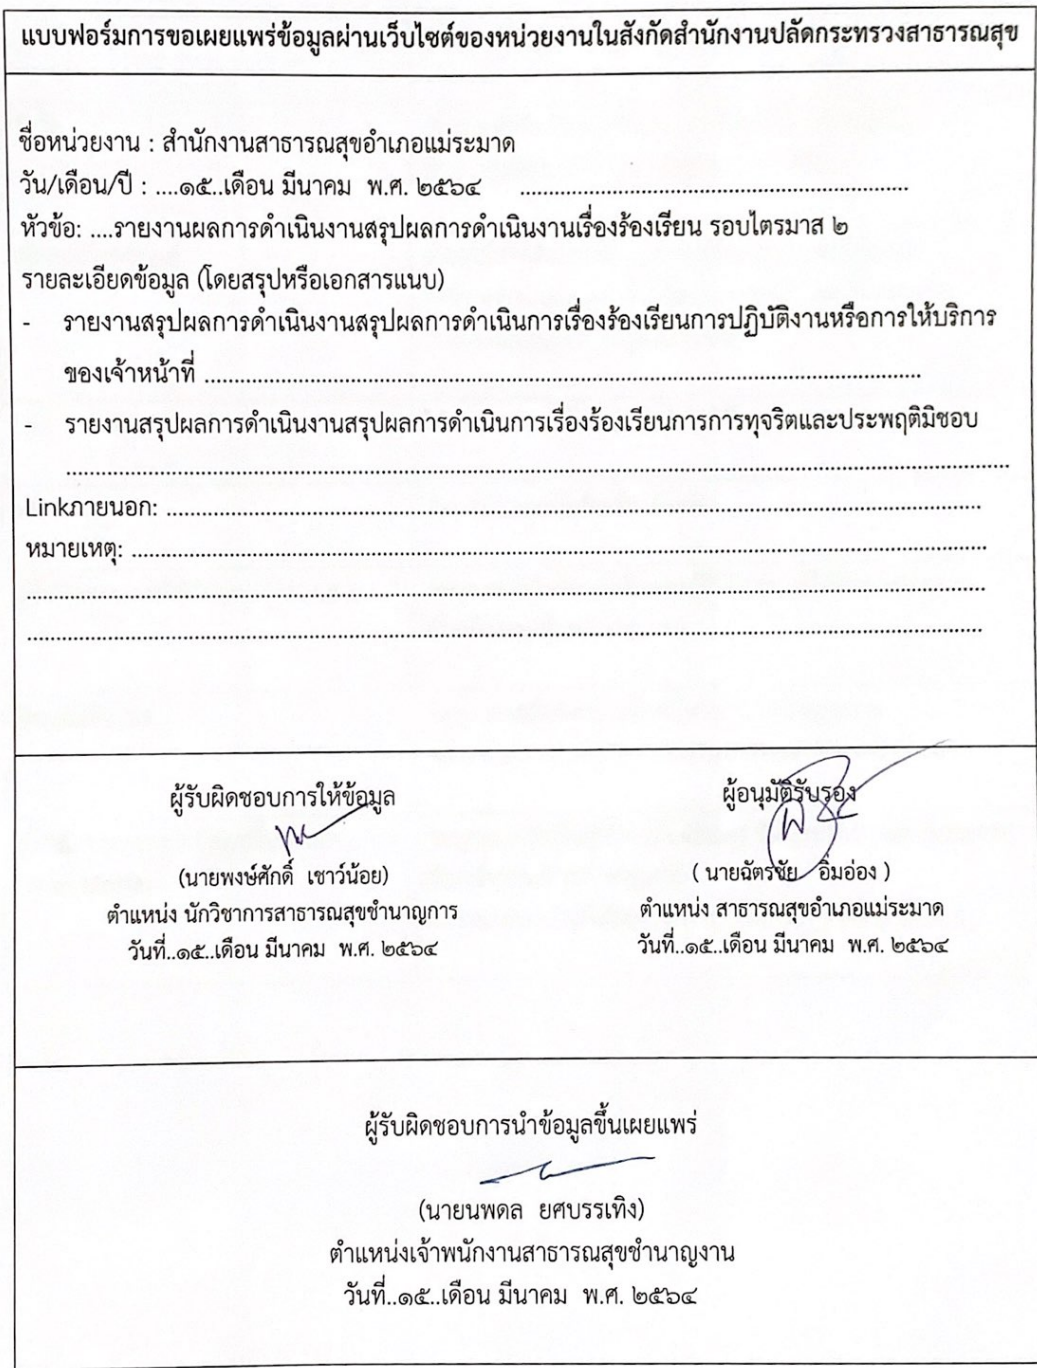 แบบฟอร์มการขอเผยแพร่ข้อมูลผ่านเว็บไซต์ของหน่วยงานในสังกัดสำนักงานปลัดกระทรวงสาธารณสุข
ชื่อหน่วยงาน : สำนักงานสาธารณสุขอำเภอแม่ระมาด
วัน/เดือน/ปี : ....๑๕..เดือน มีนาคม พ.ศ. ๒๕๖๔ ....................................................................
หัวข้อ: ....รายงานผลการดำเนินงานสรุปผลการดำเนินงานเรื่องร้องเรียน รอบไตรมาส ๒
รายละเอียดข้อมูล (โดยสรุปหรือเอกสารแนบ)
- รายงานสรุปผลการดำเนินงานสรุปผลการดำเนินการเรื่องร้องเรียนการปฏิบัติงานหรือการให้บริการ
ของเจ้าหน้าที่ ....................................................................
- รายงานสรุปผลการดำเนินงานสรุปผลการดำเนินการเรื่องร้องเรียนการการทุจริตและประพฤติมิชอบ
....................................................................
Linkภายนอก: ....................................................................
หมายเหตุ: ....................................................................
....................................................................
....................................................................
ผู้รับผิดชอบการให้ข้อมูล
(นายพงษ์ศักดิ์ เชาว์น้อย)
ตำแหน่ง นักวิชาการสาธารณสุขชำนาญการ
วันที่..๑๕..เดือน มีนาคม พ.ศ. ๒๕๖๔
ผู้อนุมัติรับรอง
( นายฉัตรชัย อิ่มอ่อง )
ตำแหน่ง สาธารณสุขอำเภอแม่ระมาด
วันที่..๑๕..เดือน มีนาคม พ.ศ. ๒๕๖๔
ผู้รับผิดชอบการนำข้อมูลขึ้นเผยแพร่
(นายนพดล ยศบรรเทิง)
ตำแหน่งเจ้าพนักงานสาธารณสุขชำนาญงาน
วันที่..๑๕..เดือน มีนาคม พ.ศ. ๒๕๖๔